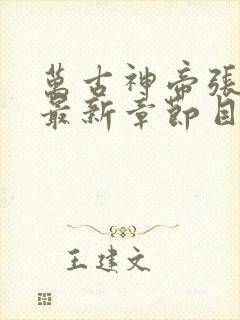 萬古神帝張
最新章節目
王建文